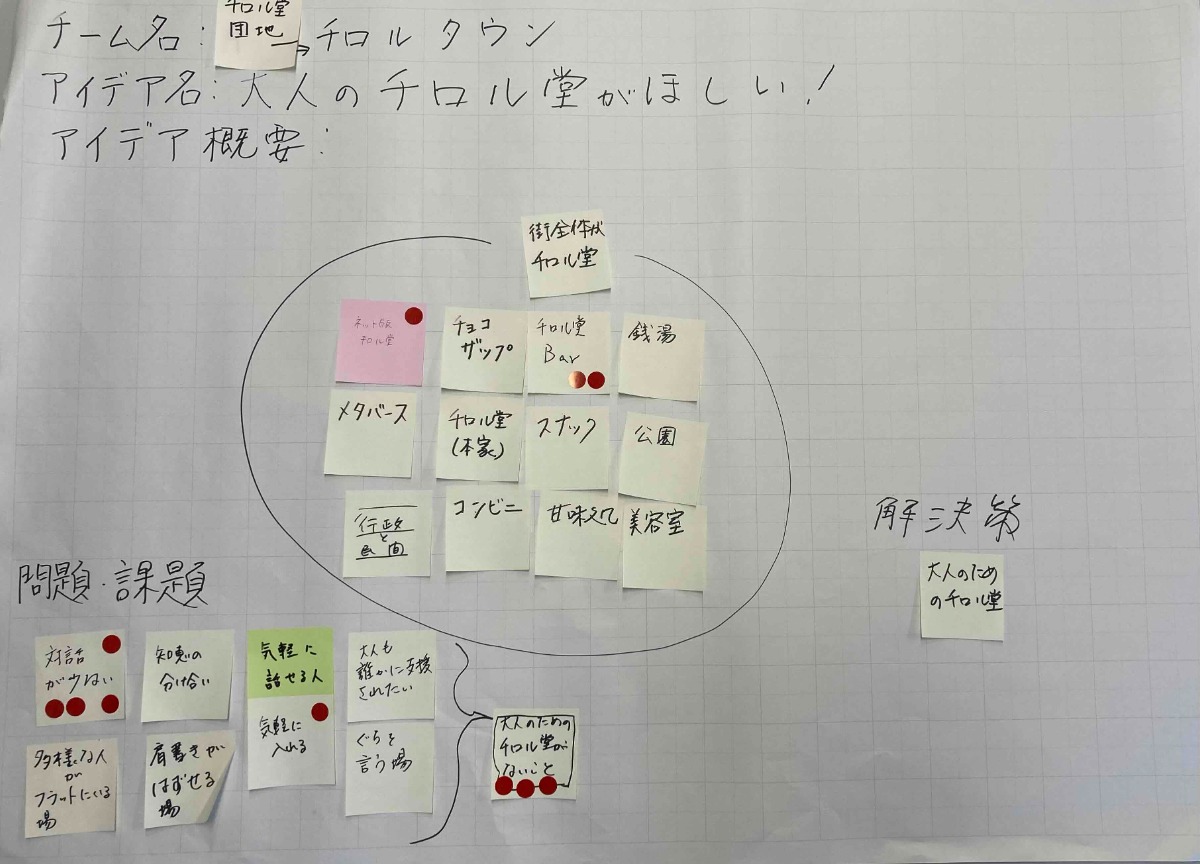 チーム名:
チロル堂
団地
→チロルタウン
アイデア名:大人のチロル堂がほしい!
アイデア概要:
街全体が
チロル堂
ネット版
チロル堂
チョコ
ザップ
チロル堂
Bar
銭湯
メタバース
チロル堂
(本家)
スナック
公園
行政
と
民間
コンビニ
甘味処
美容室
解決策
大人のため
のチロル堂
問題・課題
対話
が少ない
知恵の
分け合い
気軽に
話せる人
大人も
誰かに支援
されたい
多様な人
が
フラットにいる
場
肩書きが
はずせる
場
気軽に
入れる
ぐちを
言う場
大人のための
チロル堂が
ないこと